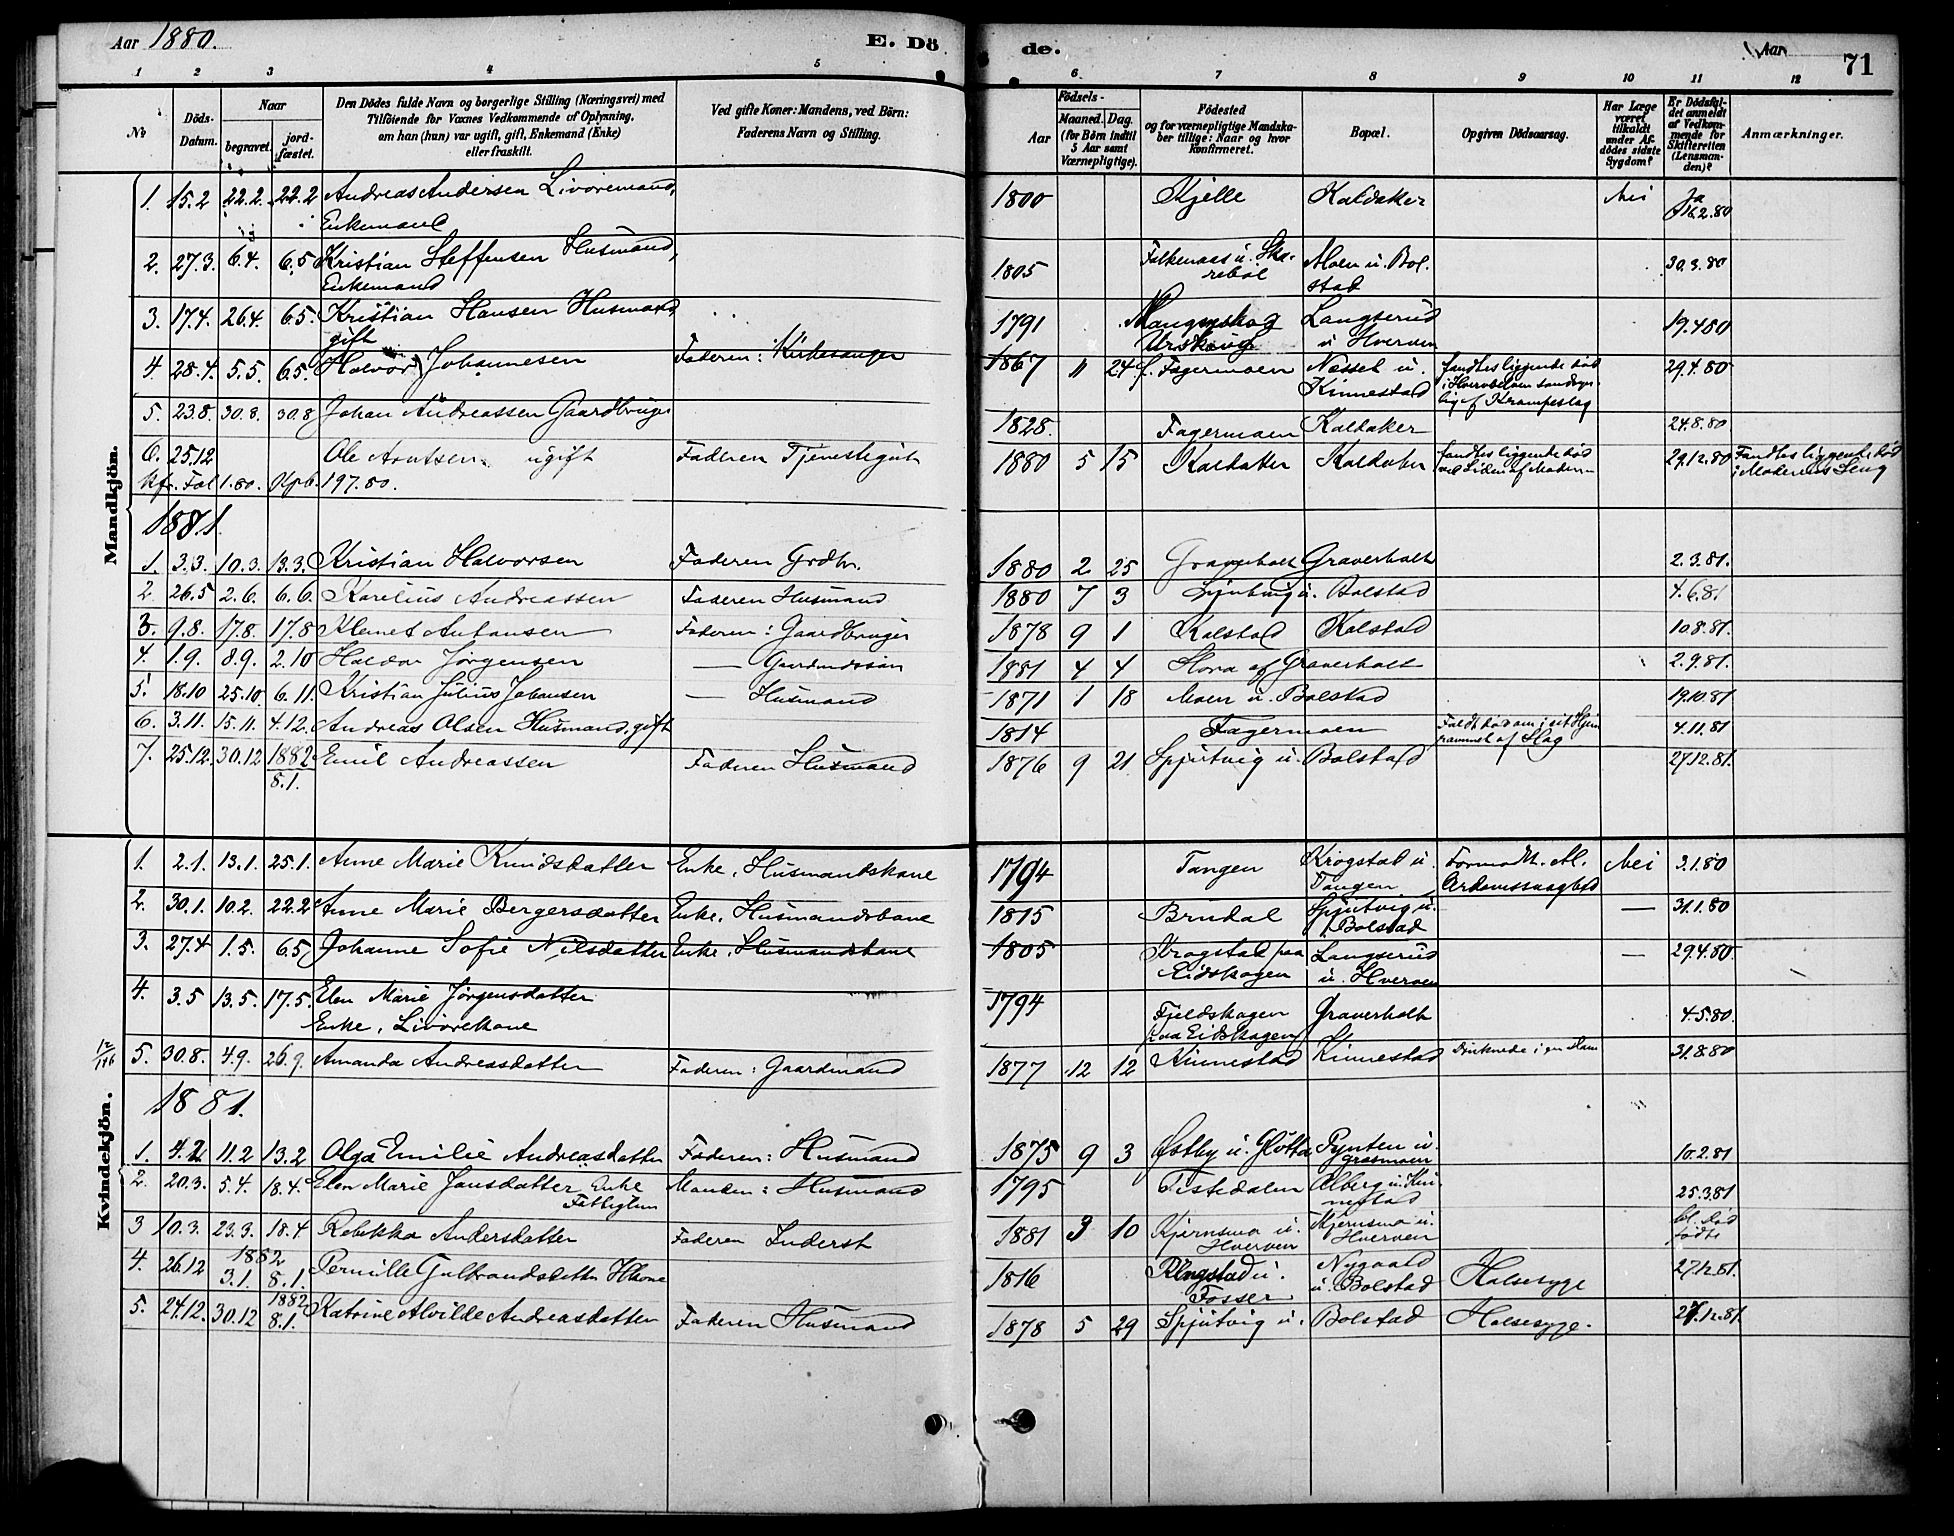 Aar 1880.
E. Dö
de.
Aar
71
1 2 3 4 5 6 7 8 9 10 11 12
No
Döds-Datum.
Naar
begravet.
jord-fæstet.
Den Dödes fulde Navn og borgerlige Stilling (Næringsvei) med
Tilföiende for Voxnes Vedkommende af Oplysning,
om han (hun) var ugift, gift, Enkemand (Enke)
eller fraskilt.
Ved gifte Koner: Mandens, ved Börn:
Faderens Navn og Stilling.
Födsels-
Aar
Maaned. Dag.
(for Börn indtil
5 Aar samt
Værnepligtige).
Födested
og for værnepligtige Mandska-
ber tillige: Naar og hvor
konfirmeret.
Bopæl.
Opgiven Dödsaarsag.
Har Læge
været
tilkaldt
under Af-
dödes sidste
Sygdom?
Er Dödsfal-
det anmeldt
af Vedkom-
mende for
Skifteretten
(Lensman-
den)?
Anmærkninger.
Mandkjön.
1. 15.2 22.2. 22.2 Andreas Andersen Livöremand, 1800 Kjelle Kaldaker Nei Ja
Enkemand 16.2.80
2. 27.3. 6.4. 6.5 Kristian Steffensen Husmand, 1805 Falkenaas u. Ska- Moen u. Bol- 30.3.80
Enkemand rebøl stad
3. 17.4. 26.4. 6.5. Kristian Hansen Husmand 1791 Mangenskog Langserud 19.4.80
gift Urskoug u Hverven
4. 28.4. 5.5. 6.5. Halvor Johannesen Faderen: Kirkesanger 1867 11 24 f. Fagermoen Næsset u. fandtes liggende død 29.4.80
Kinnestad i Hververelven sandsyn-
lig af Krampeslag
5. 23.8. 30.8. 30.8 Johan Andreassen Gaardbruger 1828. Fagermoen Kaldaker 24.8.80
6. 25.12 Ole Arntsen ugift Faderen Tjenestegut 1880 5 15 Kaldaker Kaldaker fandtes liggende død 29.12.80 Fandtes liggende død
ved Siden af Moderen i Moderens Seng
Kfr. Fol 1.80. Op6. 197.80.
1881.
1. 3.3. 10.3. 13.3. Kristian Halvorsen Faderen Grdbr. 1880 2 25 Graverholt Graverholt 2.3.81.
2. 26.5 2.6. 6.6. Karelius Andreassen Faderen Husmand 1880 7 3 Spjutvig u. Bolstad 4.6.81
3. 9.8. 17.8. 17.8 Klemet Antonsen Faderen: Gaardbruger 1878 9 1 Kolstad Kolstad 10.8.81.
4. 1.9. 8.9. 2.10 Haldor Jørgensen — Gaardmdssøn 1881 4 4 Hora af Graverholt 2.9.81.
5. 18.10 25.10 6.11. Kristian Julius Johansen — Husmand 1871 1 18 Moen u. Bolstad 19.10.81
6. 3.11. 15.11. 4.12. Andreas Olsen Husmand, gift 1814 Fagermoen Faldt død om i sit Hjem 4.11.81
rammet af Slag
7. 25.12. 30.12 1882 Emil Andreassen Faderen Husmand 1876 9 21 Spjutvig u. Bolstad 27.12.81.
8.1.
Kvindekjön.
1. 2.1. 13.1. 25.1. Anne Marie Knudsdatter Enke, Husmandskone 1794 Tangen Krogstad u. Formodtl. Al- Nei 3.1.80
Tangen derdomssvaghed
2. 30.1. 10.2. 22.2 Anne Marie Bergersdatter Enke. Husmandskone 1815 Brudal Spjutvig u. — 31.1.80
Bolstad
3. 27.4 1.5. 6.5 Johanne Sofie Nilsdatter Enke. Husmandskone 1805 Krogstad paa Langserud — 29.4.80
Eidskogen u. Hverven
4. 3.5 13.5. 17.5. Elen Marie Jørgensdatter 1794 Fjeldskogen Graverholt 4.5.80.
Enke, Livörekone paa Eidskogen
12/146 5. 30.8. 4.9. 26.9. Amanda Andreasdatter Faderen: Gaardmand 1877 12 12 Kinnestad Kinnestad Druknede i en Dam 31.8.80
1881.
1. 4.2 11.2 13.2 Olga Emilie Andreasdatter Faderen: Husmand 1875 9 3 Østby u. Gløtta Pynten u. 10.2.81
Grasmoen
2. 20.3. 5.4. 18.4. Elen Marie Jansdatter Enke Manden: Husmand 1795 Tistedalen Aalberg u. Kin- 25.3.81
Fattiglem nestad
3 10.3. 23.3. 18.4 Rebekka Andersdatter Faderen Inderst 1881 3 10 Kjernsmo u. Kjernsmo u. bl. død
Hverven Hverven fødte
4. 26.12 1882 Pernille Gulbrandsdatter Hkone 1816 Ringstad u. Nygaard Halsesyge 27.12.81.
3.1. 8.1. Fosser u. Bolstad
5. 24.12. 30.12 1882 Katrine Alvilde Andreasdatter Faderen Husmand 1878 5 29 Spjutvig u. Bolstad Halsesyge. 27.12.81.
8.1.